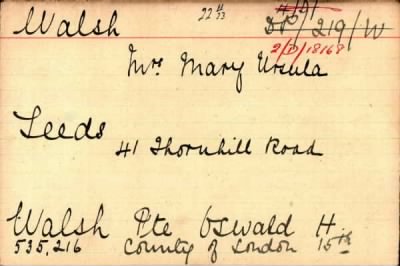 Walsh
Mrs Mary Ursula
219/W
2/D/18168
Leeds
41 Thornhill Road
Walsh Pte Oswald H.
535,216 County of London 15th